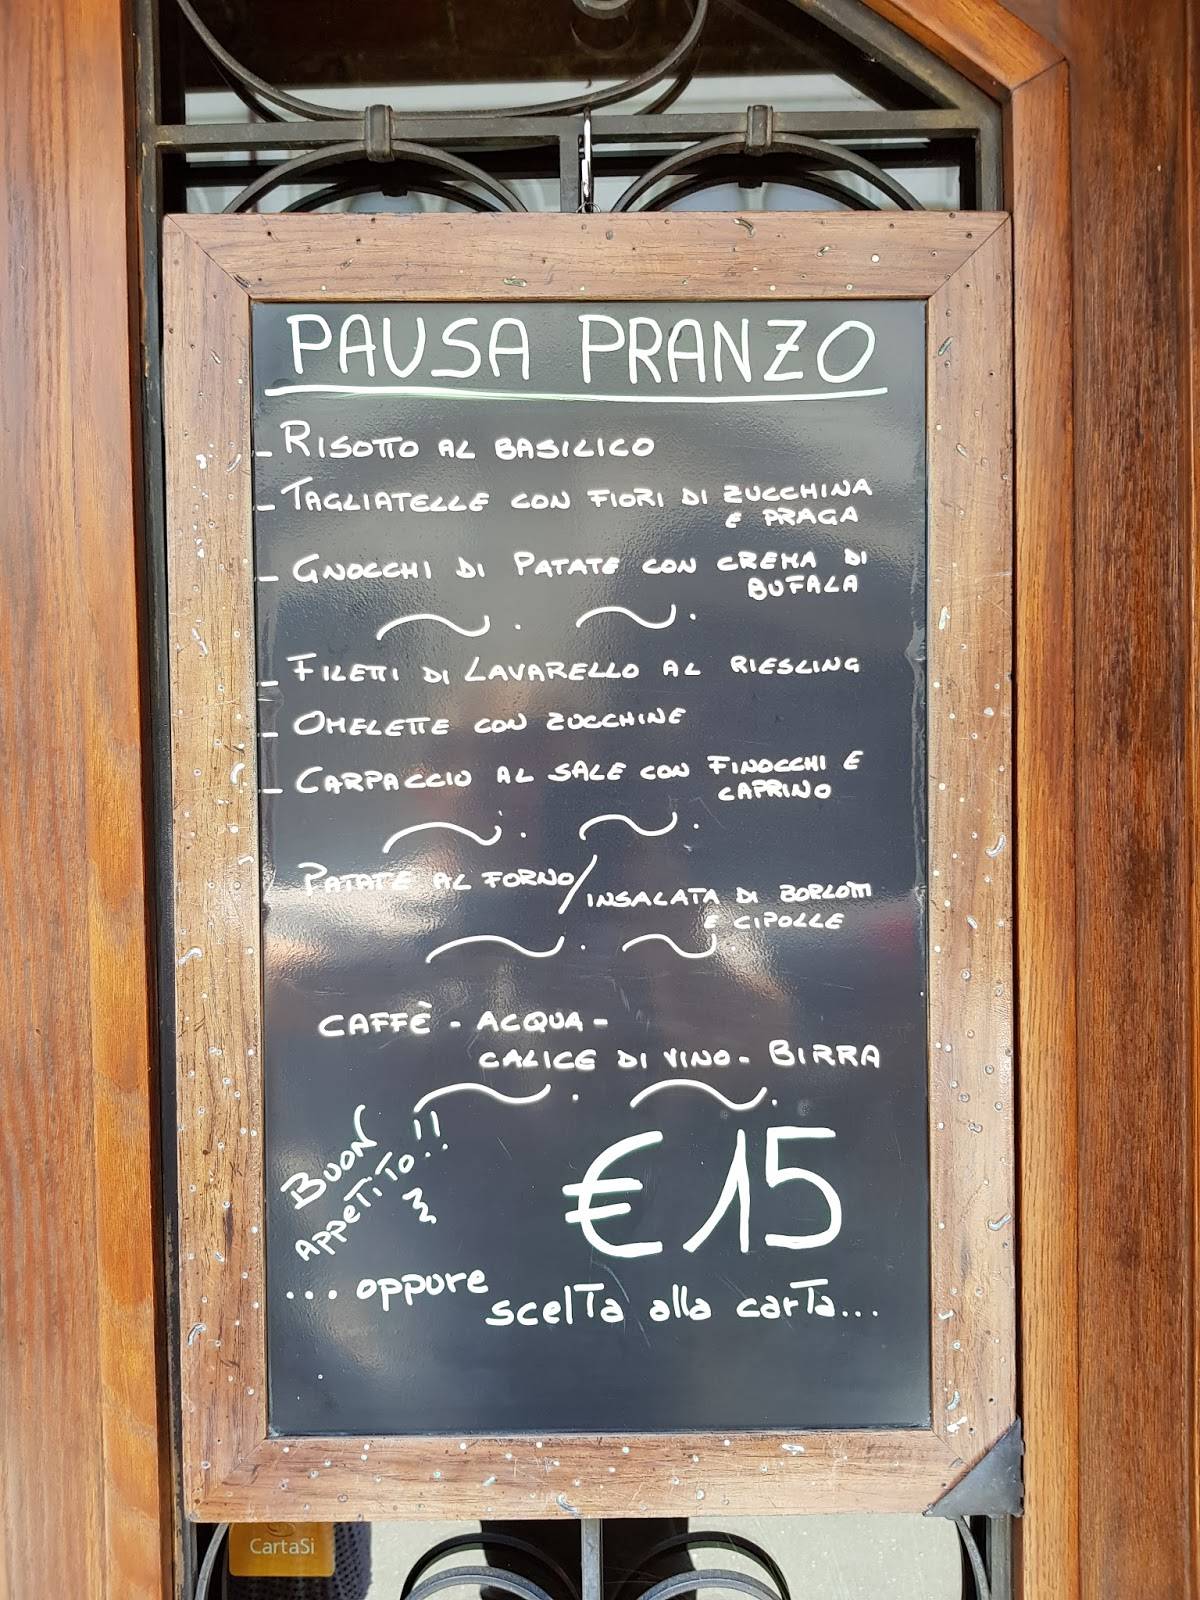 PAUSA PRANZO
- RISOTTO AL BASILICO
- TAGLIATELLE CON FIORI DI ZUCCHINA
E PRAGA
- GNOCCHI DI PATATE CON CREMA DI
BUFALA
- FILETTI DI LAVARELLO AL RIESLING
- OMELETTE CON ZUCCHINE
- CARPACCIO AL SALE CON FINOCCHI E
CAPRINO
PATATE AL FORNO/INSALATA DI BORLOTTI
E CIPOLLE
CAFFÈ - ACQUA -
CALICE DI VINO - BIRRA
BUON
APPETITO!!
€ 15
... oppure
scelta alla carta...
CartaSi